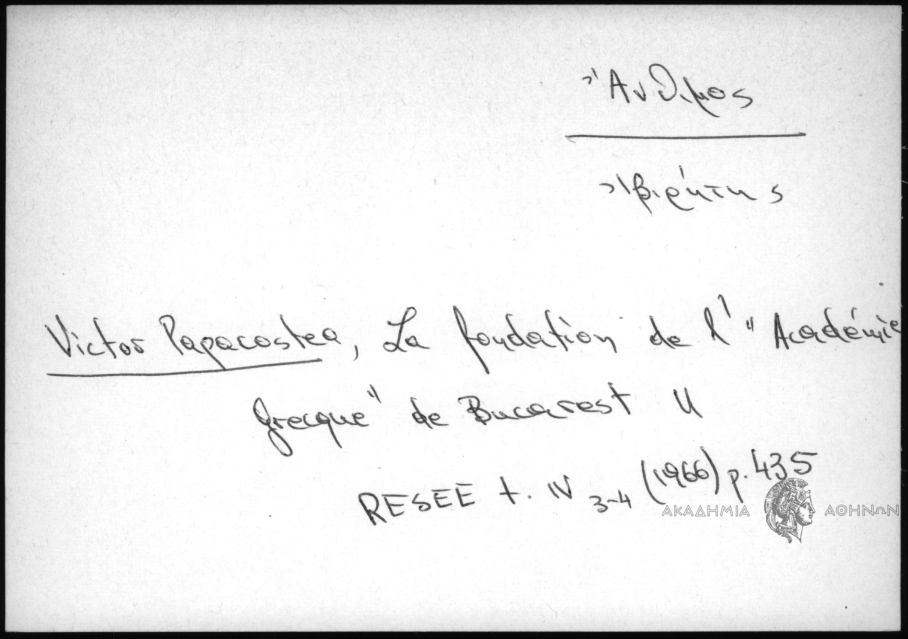 Ἄνθιμος
Ἰβιρήτης
Victor Papacostea, La fondation de l' "Académie
grecque" de Bucarest II
RESEE t. IV 3-4 (1966) p. 435
ΑΚΑΔΗΜΙΑ ΑΘΗΝΩΝ